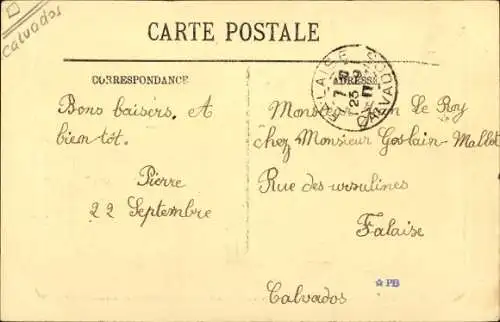 Calvados
CARTE POSTALE
CORRESPONDANCE
ADRESSE
FALAISE
CALVADOS
Bons baisers. et
bien tôt.
Pierre
22 Septembre
Monsieur Le Roy
chez Monsieur Goslain-Mallet
Rue des ursulines
Falaise
Calvados
PB